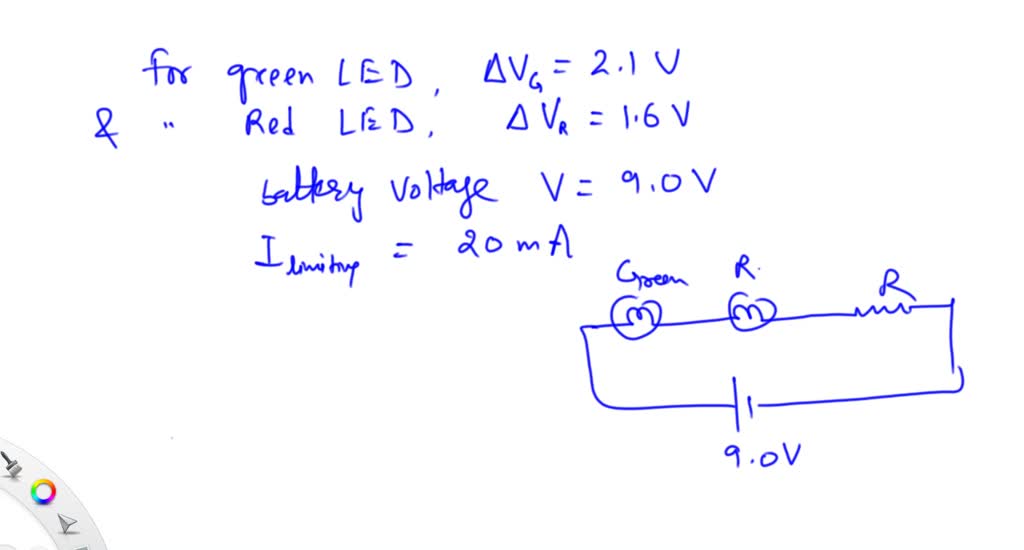 for green LED, ΔV_G = 2.1 V
& " Red LED, ΔV_R = 1.6 V
battery voltage V = 9.0 V
I_limiting = 20 mA
Green R.
R
9.0V